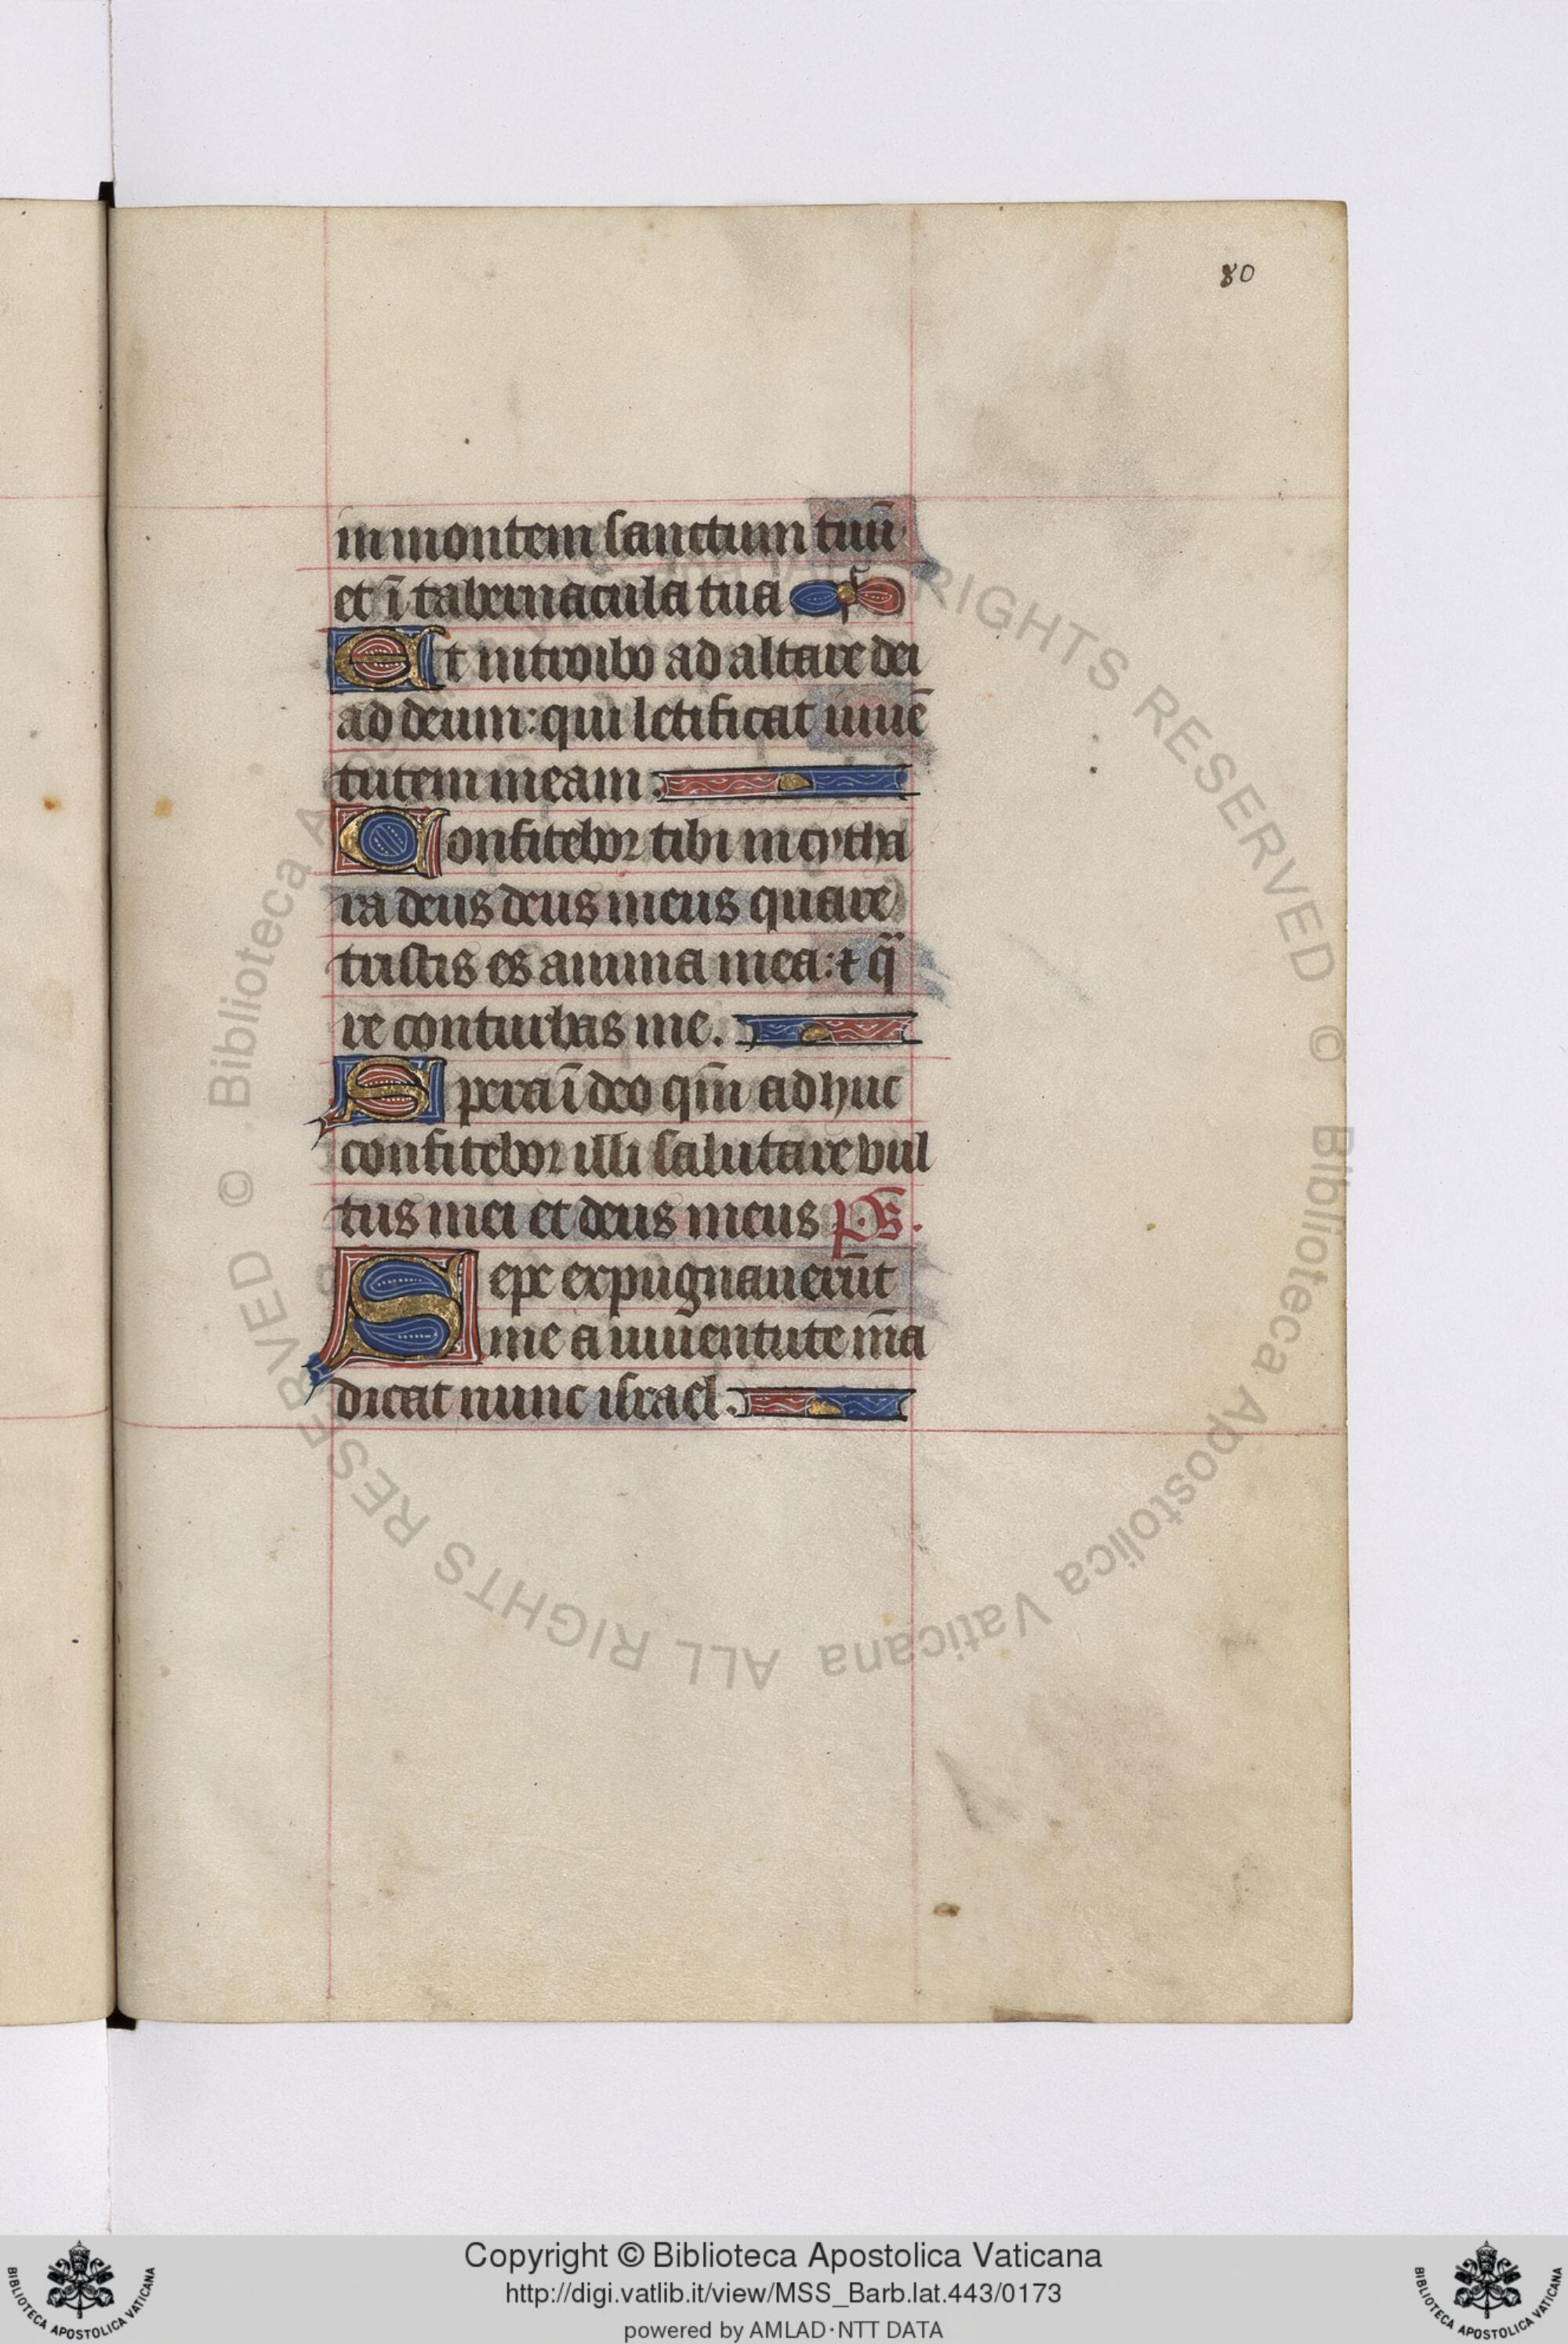 80
in montem sanctum tuū
et ī tabernacula tua
Et introibo ad altare dei
ad deum: qui letificat iuuē
tutem meam.
Confitebor tibi in cytha
ra deus deus meus quare
tristis es anima mea: ⁊ qͣ
re conturbas me.
Spera ī deo qm̄ adhuc
confitebor illi salutare vul
tus mei et deus meus p̄.s̄.
Sepe expugnauerūt
me a iuuentute m̄a
dicat nunc israel.
© Biblioteca Apostolica Vaticana ALL RIGHTS RESERVED
Copyright © Biblioteca Apostolica Vaticana
http://digi.vatlib.it/view/MSS_Barb.lat.443/0173
powered by AMLAD·NTT DATA
BIBLIOTECA APOSTOLICA VATICANA
BIBLIOTECA APOSTOLICA VATICANA